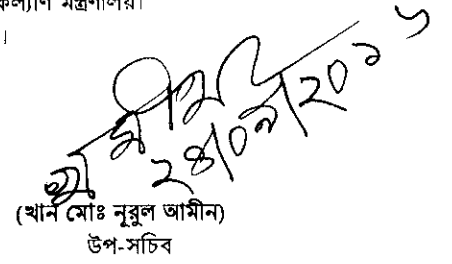 কল্যাণ মন্ত্রণালয়।
।
২৪/০৯/২০১৬
(খান মোঃ নূরুল আমীন)
উপ-সচিব